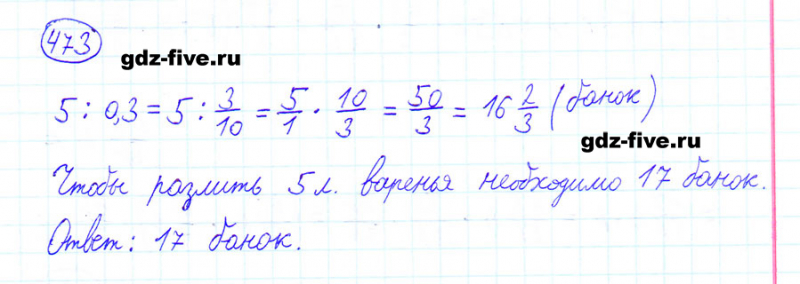 473
gdz-five.ru
5 : 0,3 = 5 : 3/10 = 5/1 · 10/3 = 50/3 = 16 2/3 (банок)
gdz-five.ru
Чтобы разлить 5 л. варенья необходимо 17 банок.
Ответ: 17 банок.